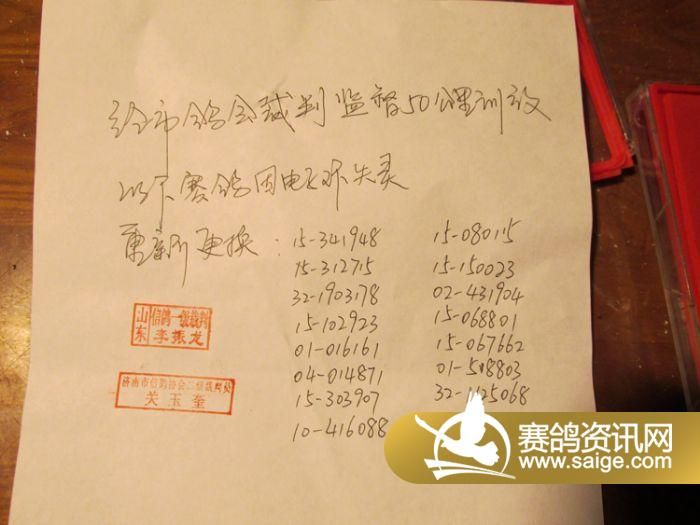 经市鸽会裁判监督50公里训放
以下赛鸽因电子环失灵
重新更换：
15-341948
15-312715
32-1903178
15-102923
01-016161
04-014871
15-303907
10-416088
15-080115
15-150023
02-431904
15-068801
15-067662
01-508803
32-1125068
山东
信鸽一级裁判
李振龙
济南市信鸽协会二级裁判
关玉奎
赛鸽资讯网
www.saige.com